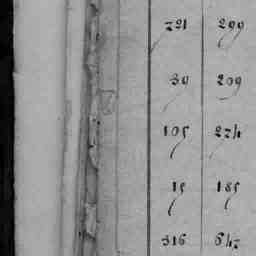 221 299
39 209
105 224
15 185
316 642